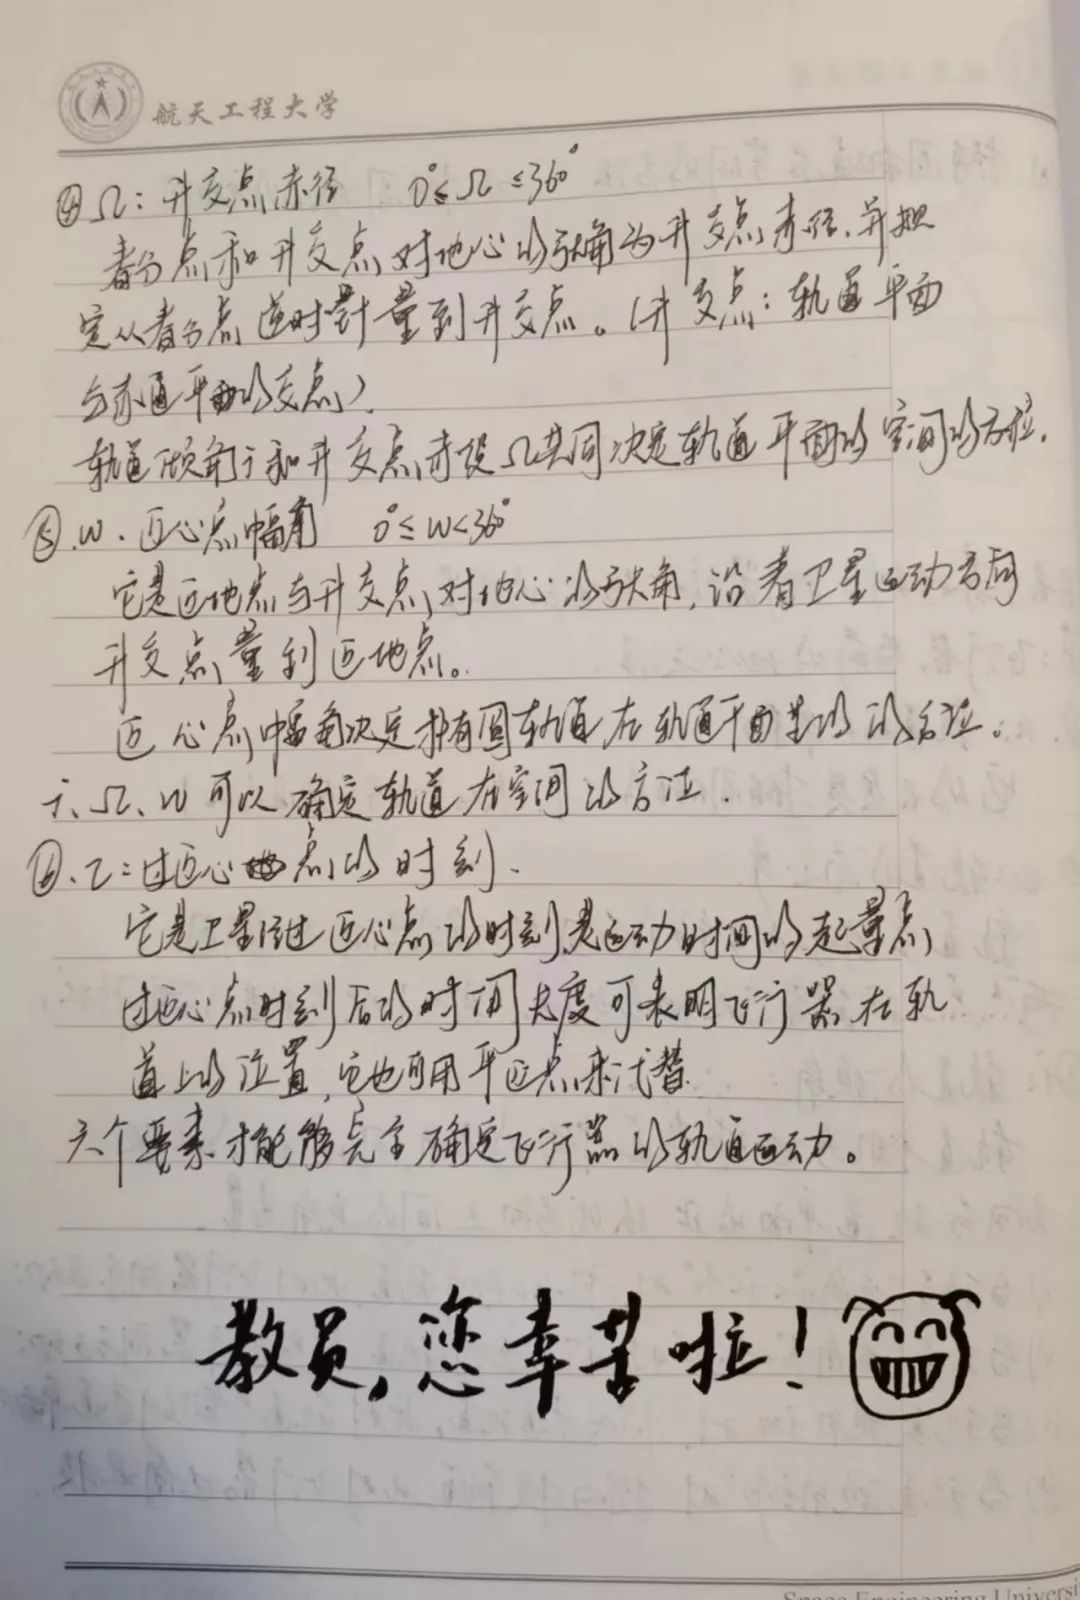 航天工程大学
④Ω：升交点赤径 0°≤Ω≤360°
春分点和升交点对地心的张角为升交点赤径，并规
定从春分点逆时针量到升交点。（升交点：轨道平面
与赤道平面的交点）
轨道倾角i和升交点赤径Ω共同决定轨道平面的空间的方位。
⑤.w.近心点幅角 0°≤w<360°
它是近地点与升交点对地心的张角，沿着卫星运动方向
升交点量到近地点。
近心点幅角决定椭圆轨道在轨道平面里的方位。
i、Ω、w可以确定轨道在空间的方位.
⑥.τ：过近心点的时刻.
它是卫星经过近心点的时刻,是运动时间的起量点
过近心点时刻后的时间长度可表明飞行器在轨
道上的位置，它也可用平近点来代替.
六个要素才能够完全确定飞行器的轨道运动。
教员，您幸苦啦！
Space Engineering Universi